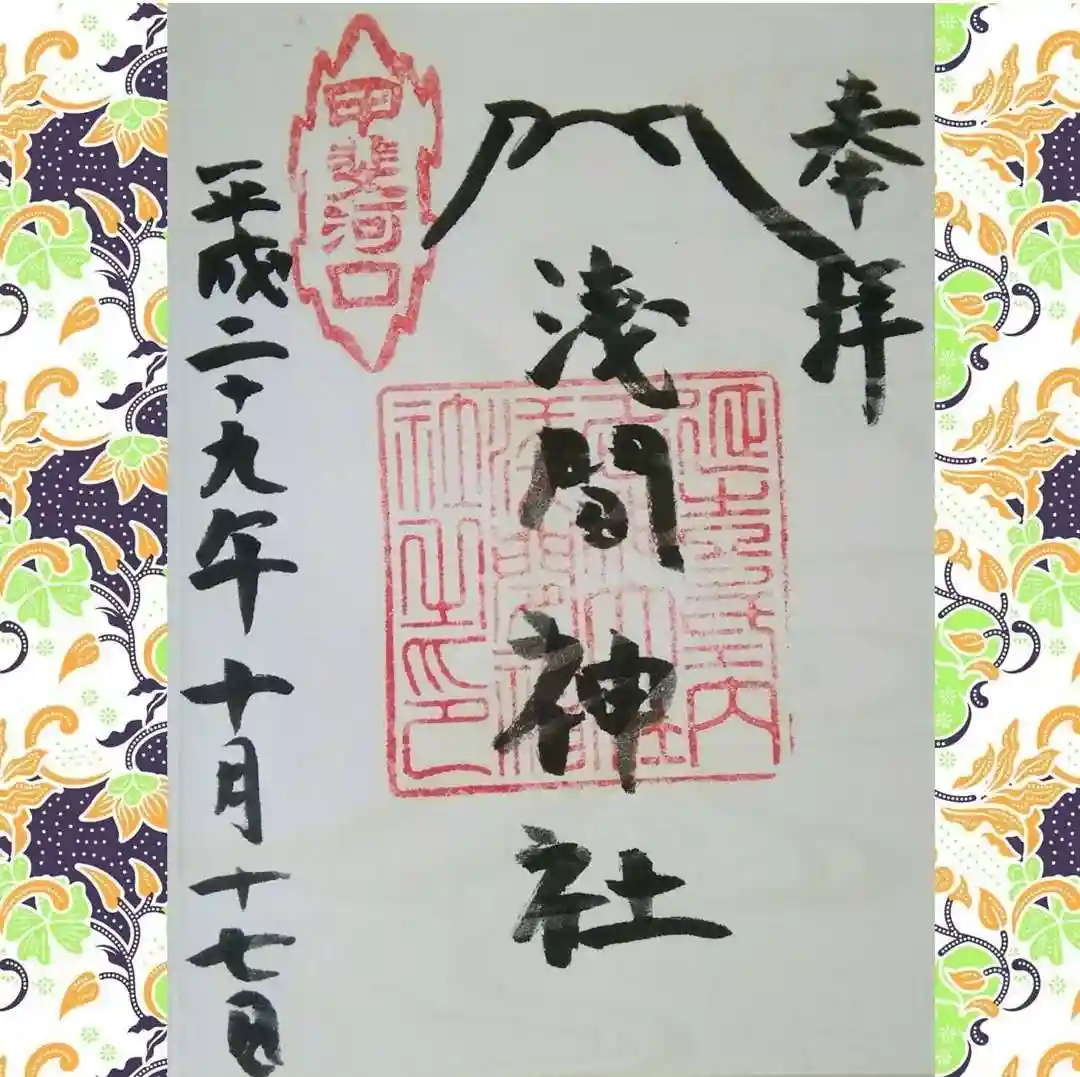 奉拝
淺間神社
甲斐河口
平成二十九年十月十七日